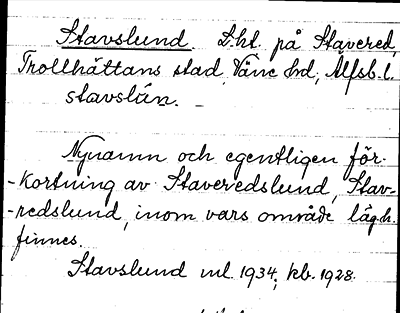 Stavslund. Lht. på Stavered,
Trollhättans stad, Väne hd, Älfsb. l.
stavslún. –
Nynamn och egentligen för-
-kortning av Staveredslund, Stav-
-redslund, inom vars område lägh.
finnes.
Stavslund ml. 1934; kb. 1928.